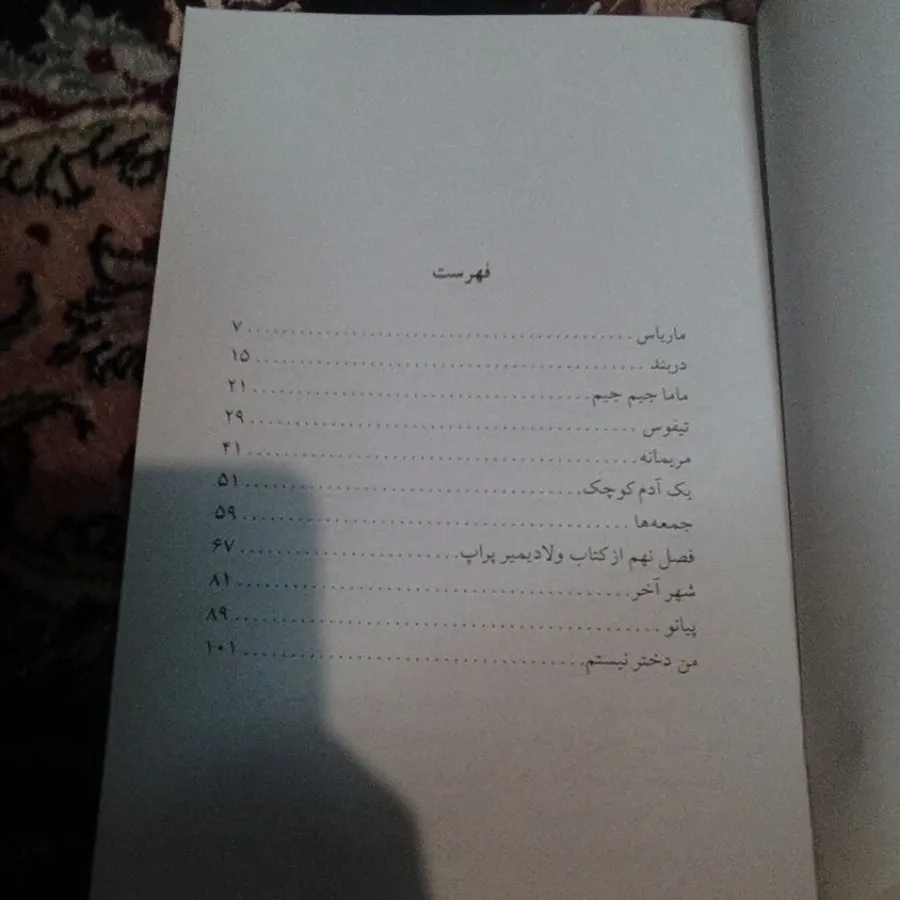 فهرست
ماریاس ........ ۷
دربند ........ ۱۵
ماما جیم جیم ........ ۲۱
تیفوس ........ ۲۹
مریمانه ........ ۴۱
یک آدم کوچک ........ ۵۱
جمعه‌ها ........ ۵۹
فصل نهم از کتاب ولادیمیر پراپ ........ ۶۷
شهر آخر ........ ۸۱
پیانو ........ ۸۹
من دختر نیستم ........ ۱۰۱